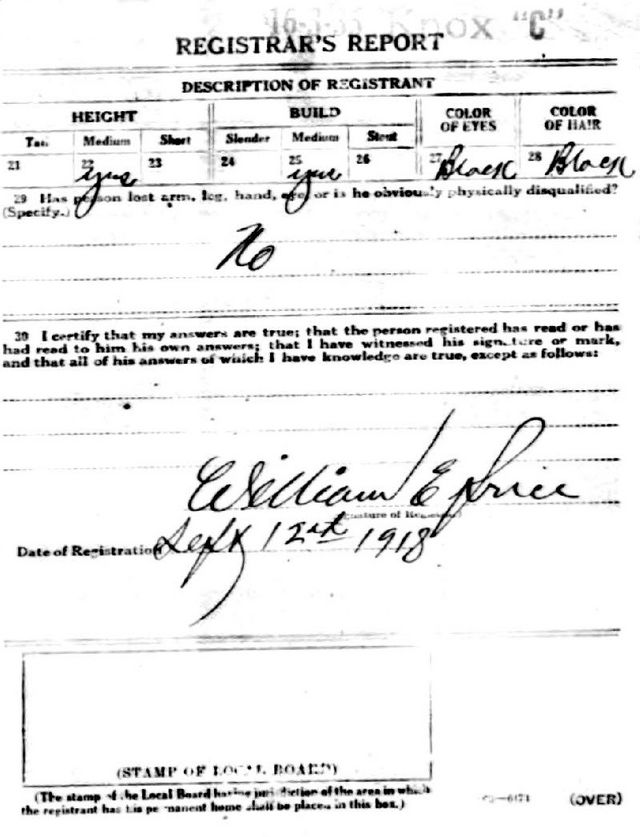 Knox "C"
REGISTRAR'S REPORT
DESCRIPTION OF REGISTRANT
HEIGHT BUILD COLOR OF EYES COLOR OF HAIR
Tall Medium Short Slender Medium Stout
21 22 yes 23 24 25 yes 26 27 Black 28 Black
29 Has person lost arm, leg, hand, eye, or is he obviously physically disqualified?
(Specify.)
No
30 I certify that my answers are true; that the person registered has read or has
had read to him his own answers; that I have witnessed his signature or mark,
and that all of his answers of which I have knowledge are true, except as follows:
William E Price
(Signature of Registrar)
Date of Registration Sept 12th 1918
(STAMP OF LOCAL BOARD)
(The stamp of the Local Board having jurisdiction of the area in which
the registrant has his permanent home shall be placed in this box.)
(OVER)